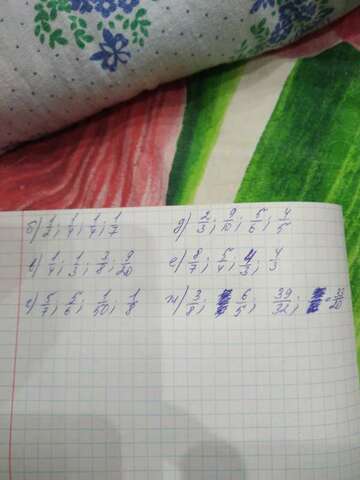 б) 1/2; 1/4; 1/4; 1/7 д) 2/3; 9/10; 5/6; 4/5
в) 1/4; 1/3; 3/8; 9/20 е) 8/7; 5/4; 4/3; 4/3
г) 5/7; 5/6; 1/50; 1/8 ж) 3/8; 6/5; 39/32;